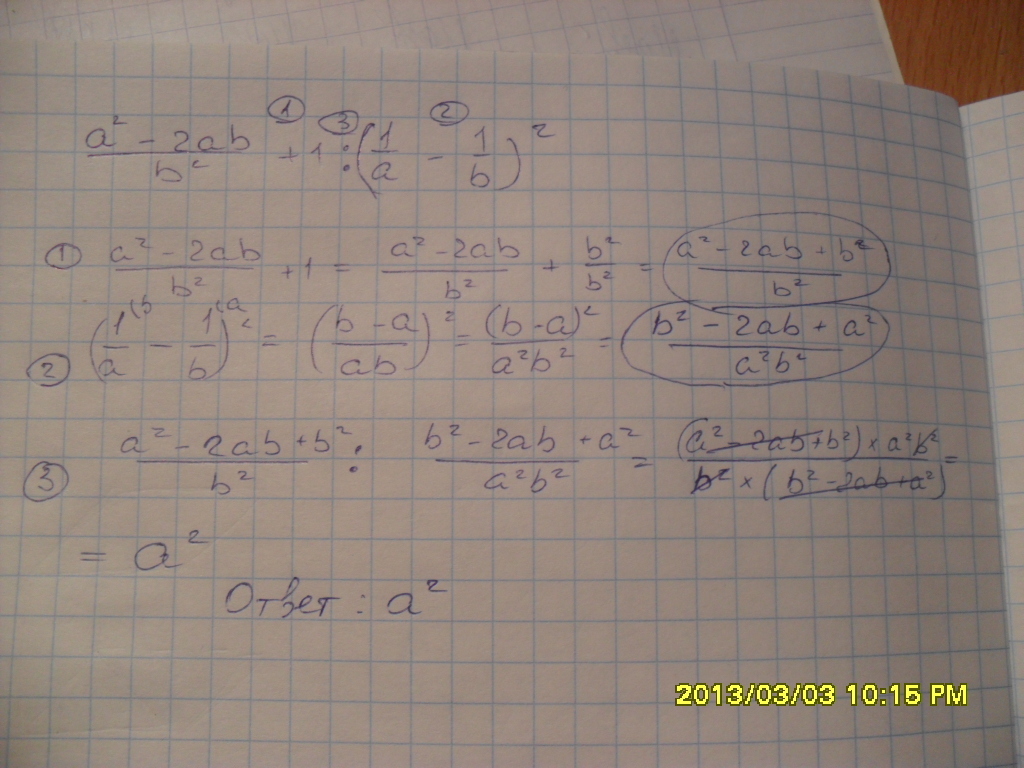 ① ③ ②
(a² - 2ab)/b² + 1 : (1/a - 1/b)²
① (a² - 2ab)/b² + 1 = (a² - 2ab)/b² + b²/b² = (a² - 2ab + b²)/b²
② (1⁽ᵇ/a - 1⁽ᵃ/b)² = ((b - a)/ab)² = (b - a)²/a²b² = (b² - 2ab + a²)/a²b²
③ (a² - 2ab + b²)/b² : (b² - 2ab + a²)/a²b² = ((a² - 2ab + b²) × a²b²)/(b² × (b² - 2ab + a²)) =
= a²
Ответ : a²
2013/03/03 10:15 PM